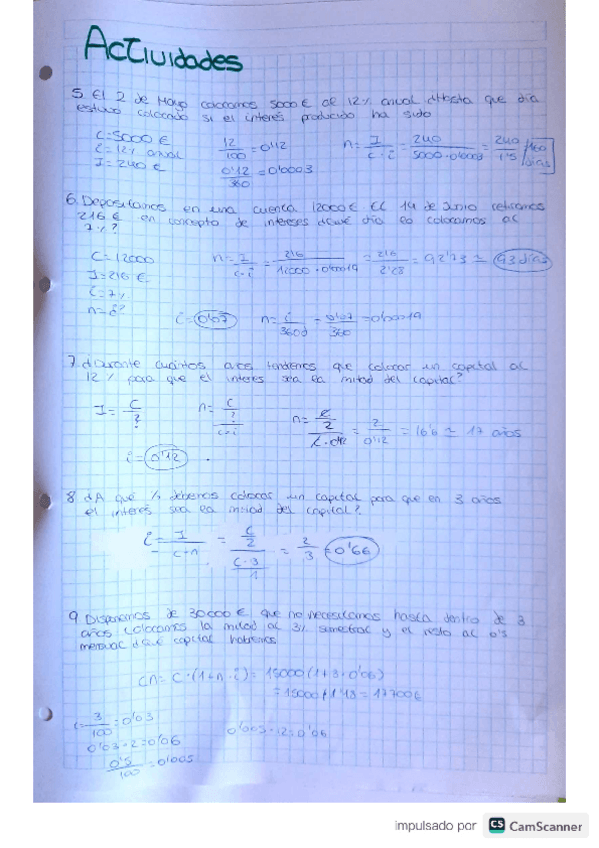 Actividades
5. El 2 de Mayo colocamos 5000 € al 12% anual ¿Hasta que día
estuvo colocado si el interes producido ha sido
C=5000 €
i=12% anual
I=240 €
12/100=0'12
0'12/360=0'0003
n= I/C·i = 240/5000·0'0003 = 240/1'5 160 días
6. Depositamos en una cuenta 12000 € El 14 de Junio retiramos
216 € en concepto de intereses ¿Qué día lo colocamos al
7%?
C=12000
I=216 €
i=7%
n=¿?
n= I/C·i = 216/12000·0'00019 = 216/2'28 = 92'73 ≃ 93 días
i=0'07
n= i/360d = 0'07/360 =0'00019
7. ¿Durante cuántos años tendremos que colocar un capital al
12% para que el interes sea la mitad del capital?
I= C/?
n= C/?/C·i
n= C/2/C·0'12 = 2/0'12 = 16'6 ≃ 17 años
i=0'12
8 ¿A que % debemos colocar un capital para que en 3 años
el interes sea la mitad del capital?
i= I/C·n = C/2/C·3/1 = 2/3 =0'66
9 Disponemos de 30000 € que no necesitamos hasta dentro de 3
años colocamos la mitad al 3% semestral y el resto al 0'5
mensual ¿Qué capital habremos
Cn= C·(1+n·i)= 15000(1+3·0'06)
=15000·1'18=17700€
i=3/100=0'03
0'03·2=0'06
0'005·12=0'06
0'5/100=0'005
impulsado por CS CamScanner